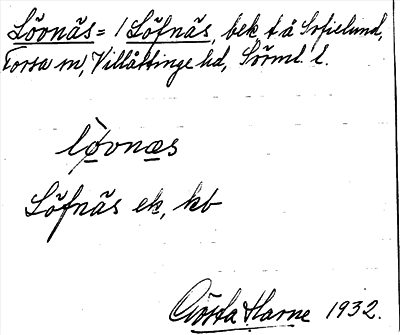 Lövnäs = / Löfnäs, bek t å Sofielund,
Torsa sn, Villåttinge hd, Sörml. l.
lø̀vnæs
Löfnäs ek, kb
Gösta Harne 1932.